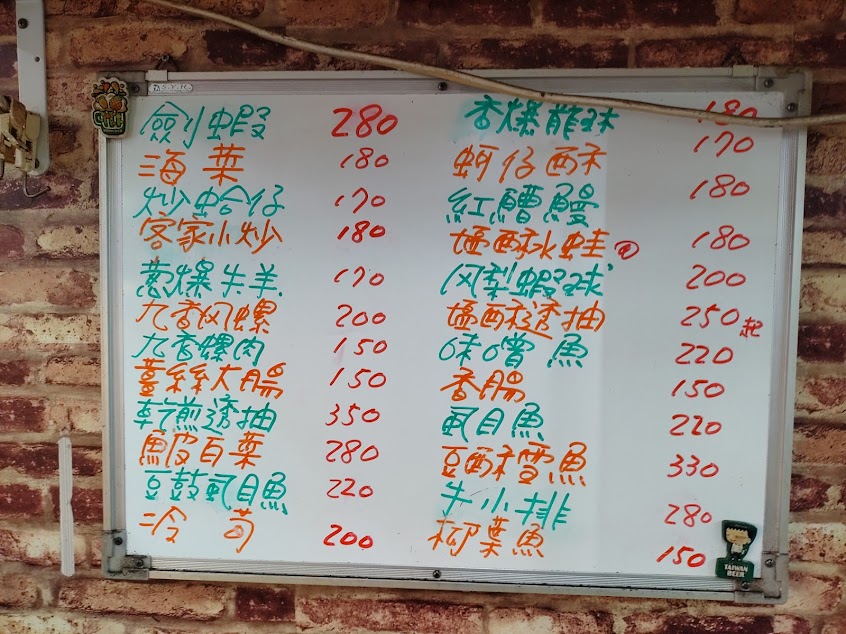 劍蝦 280
海菜 180
炒蛤仔 170
客家小炒 180
蔥爆牛羊 170
九香风螺 200
九香螺肉 150
薑絲大腸 150
乾煎透抽 350
魚皮白菜 280
豆鼓虱目魚 220
冷苟 200
香爆龍珠 180
蚵仔酥 170
紅糟鰻 180
塩酥水蛙 180
凤梨蝦球 200
塩酥透抽 250起
味噌魚 220
香腸 150
虱目魚 220
豆酥雪魚 330
牛小排 280
柳葉魚 150
TAIWAN BEER